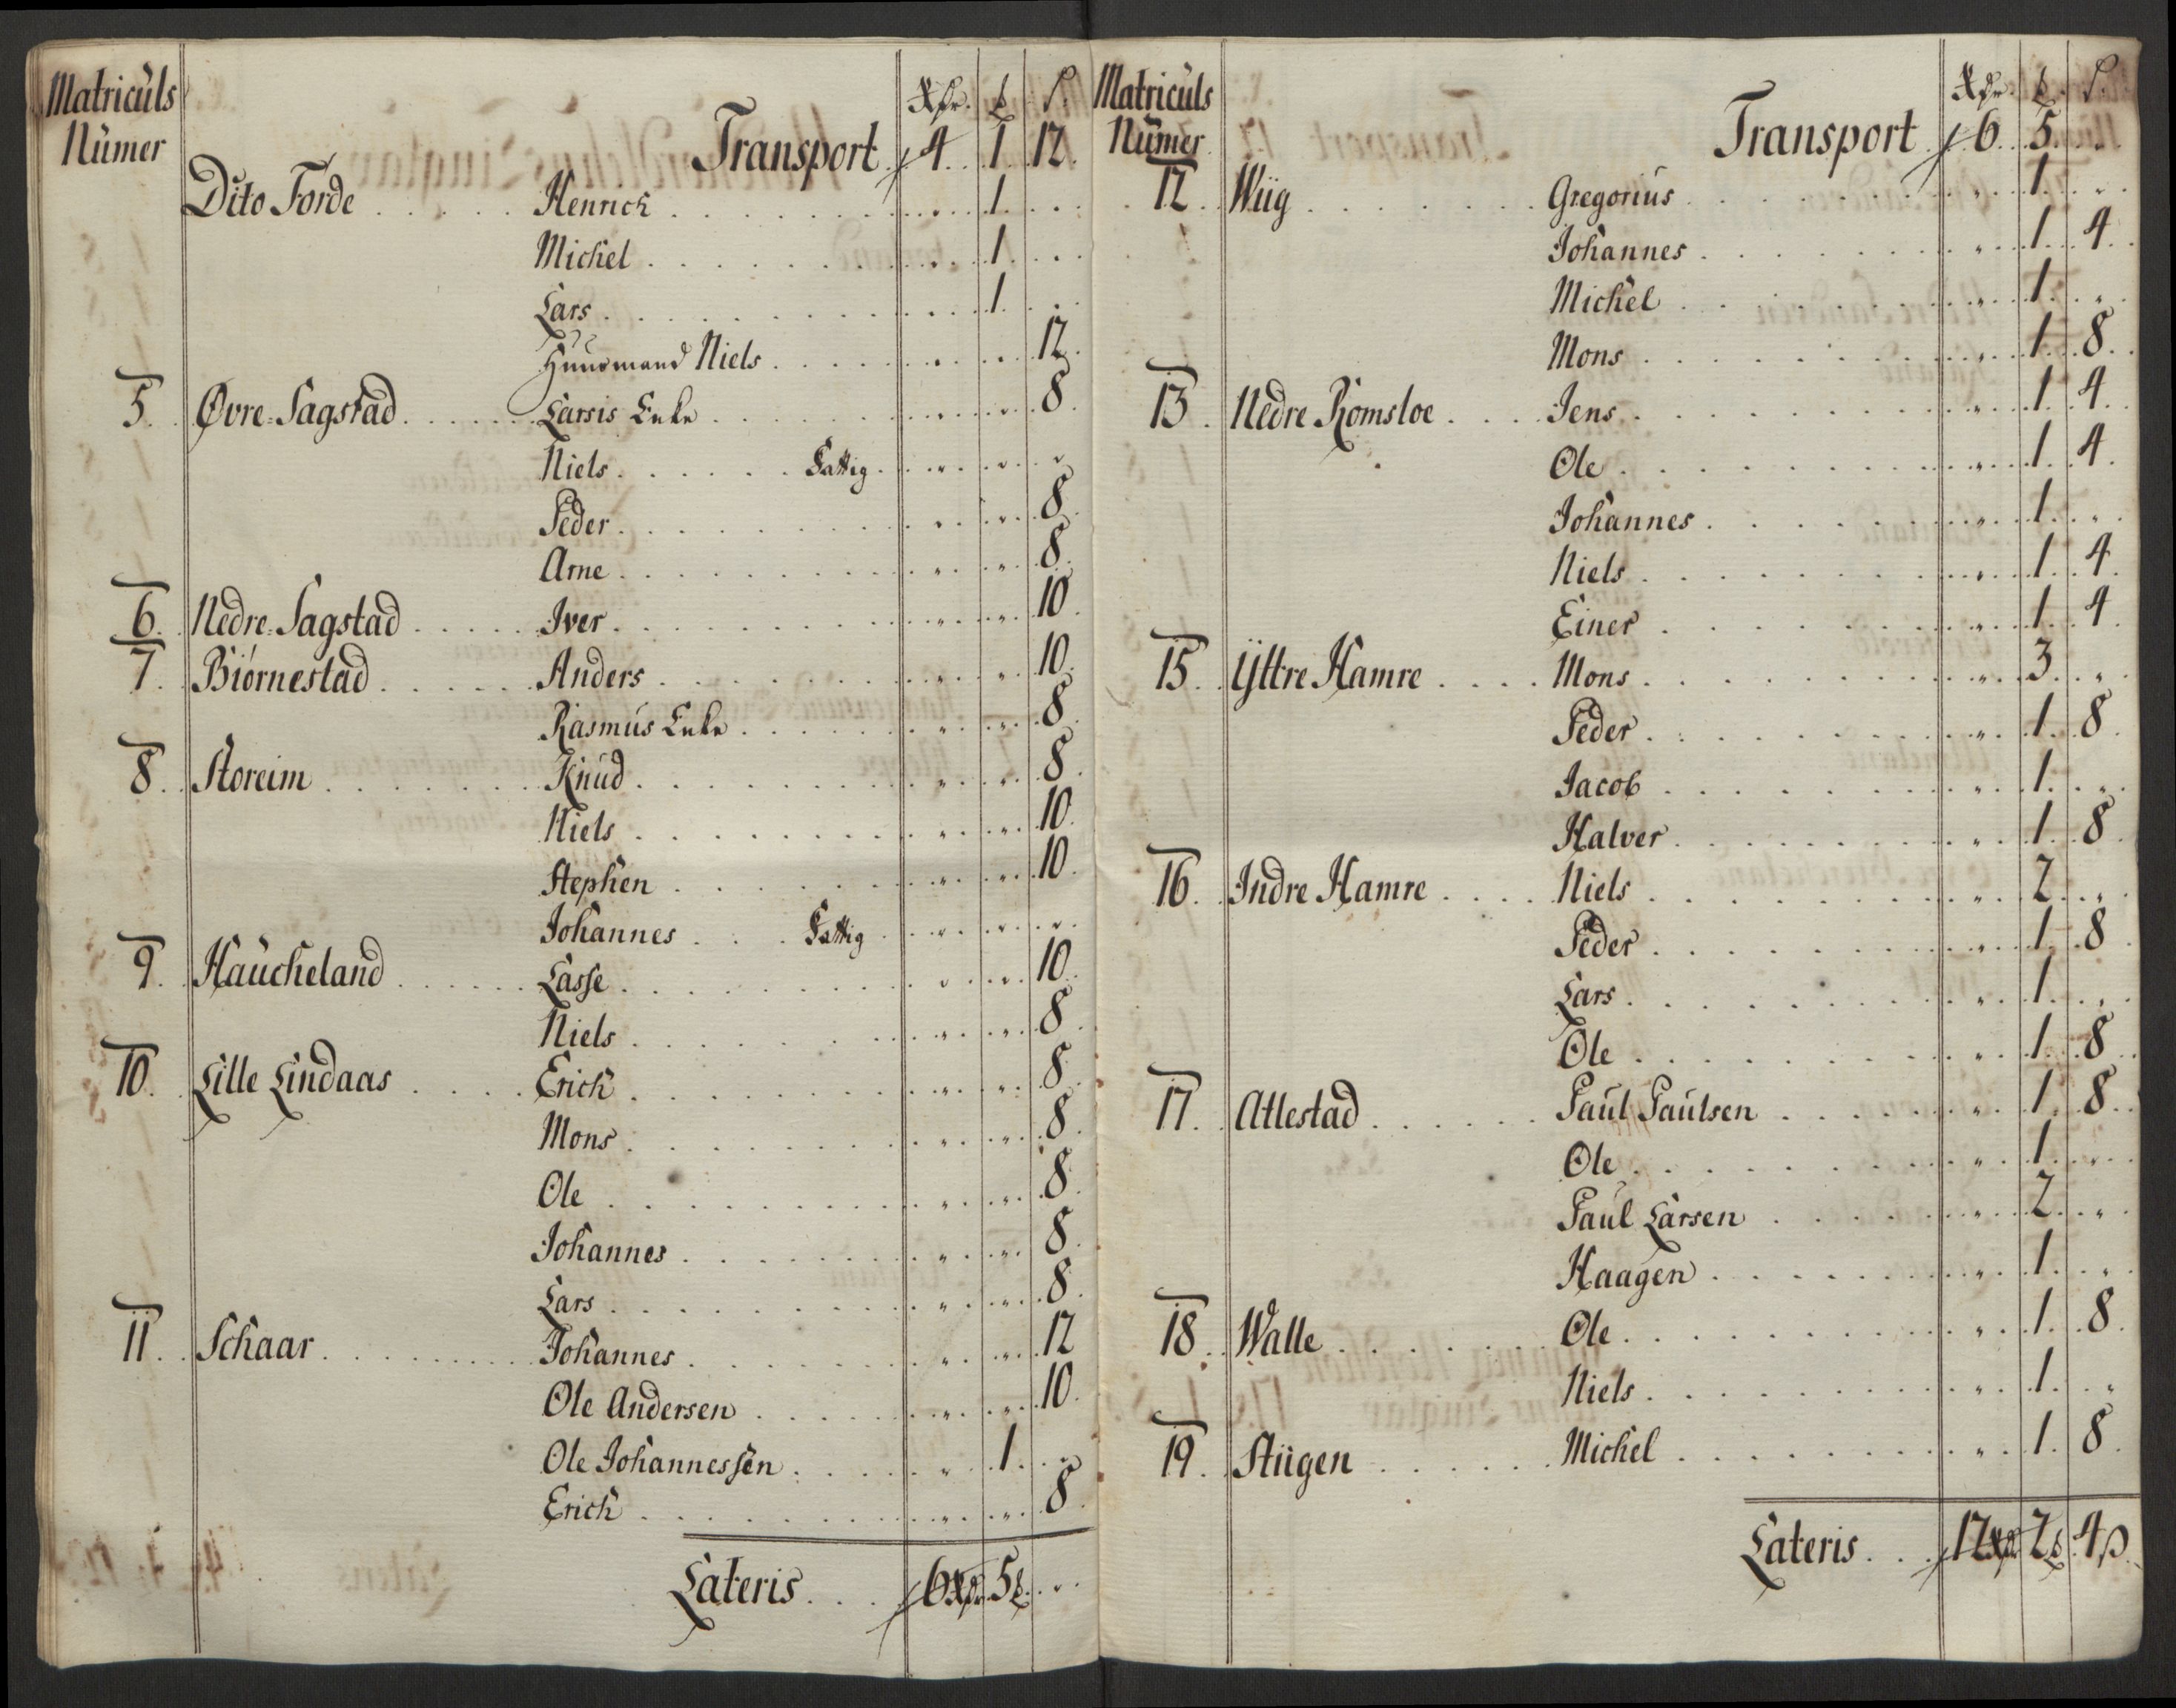 Matriculs
Numer
Xdr. ₰ ß.
Transport 4 1 12.
Dito Forde Henrich 1
Michel 1
Lars 1
Huusmand Niels 12
5. Øvre-Sagstad Larsis Enke 8
Niels Fattig
Peder 8
Arne 8
6. Nedre-Sagstad Iver 10
7. Biørnestad Anders 10
Rasmus Enke 8
8. Storeim Knud 8
Niels 10
Stephen 10
Johannes Fattig
9. Haucheland Lasse 10
Niels 8
10. Lille Lindaas Erich 8
Mons 8
Ole 8
Johannes 8
Lars 8
11. Schaar Johannes 12
Ole Andersen 10
Ole Johannessen 1
Erich 8
Lateris 6 5
Matriculs
Numer
Xdr. ₰ ß.
Transport 6 5
12. Wiig Gregorius 1
Johannes 1 4
Michel 1
Mons 1 8
13. Nedre Romsloe Jens 1 4
Ole 1 4
Johannes 1
Niels 1 4
Einer 1 4
15. Yttre Hamre Mons 3
Peder 1 8
Jacob 1
Halver 1 8
16. Indre Hamre Niels 2
Peder 1 8
Lars 1
Ole 1 8
17. Atlestad Paul Paulsen 1 8
Ole 1
Paul Larsen 2
Haagen 1
18. Walle Ole 1 8
Niels 1
19. Stiigen Michel 1 8
Lateris 12 2 4 ß